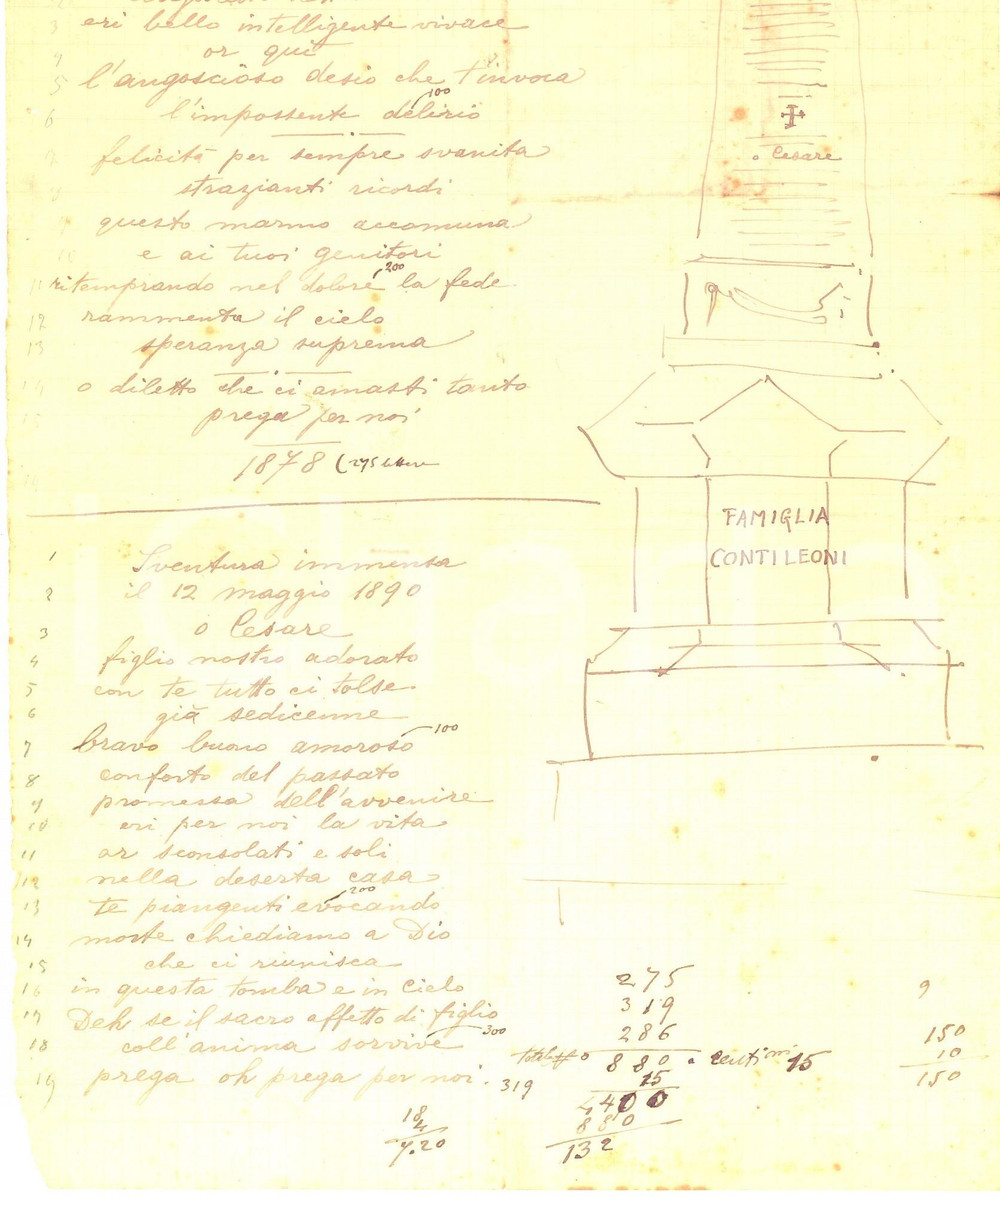 3 eri bello intelligente vivace
4 or qui
5 l'angoscioso desio che t'invoca
6 l'impossente delirio 100
felicità per sempre svanita
strazianti ricordi
questo marmo accomuna
10 e ai tuoi genitori
11 ritemprando nel dolore 200 la fede
12 rammenta il cielo
13 speranza suprema
14 o diletto che ci amasti tanto
15 prega per noi
1878 (275 lettere
1 Sventura immensa
2 il 12 maggio 1890
3 o Cesare
4 figlio nostro adorato
5 con te tutto ci tolse
6 già sedicenne
7 bravo buono amoroso 100
8 conforto del passato
9 promessa dell'avvenire
10 eri per noi la vita
11 or sconsolati e soli
12 nella deserta casa
13 te piangenti evocando 200
14 morte chiediamo a Dio
15 che ci riunisca
16 in questa tomba e in Cielo
17 Deh se il sacro affetto di figlio
18 coll'anima sorvive 300
19 prega oh prega per noi. 319
18
4
7.20
o Cesare
FAMIGLIA
CONTI LEONI
275
319
286
880 a centimi 15
15
4400
880
132
9
150
10
150